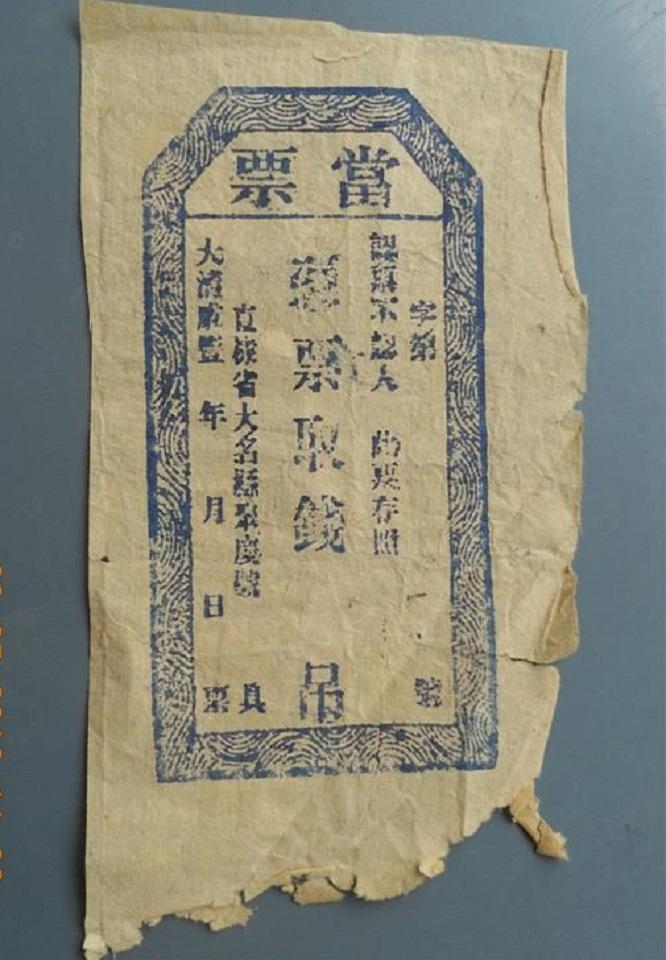 當票
字第 號
認票不認人 出票存照
憑票取錢 吊
直隸省大名縣聚慶號 具
大清咸豐 年 月 日 票